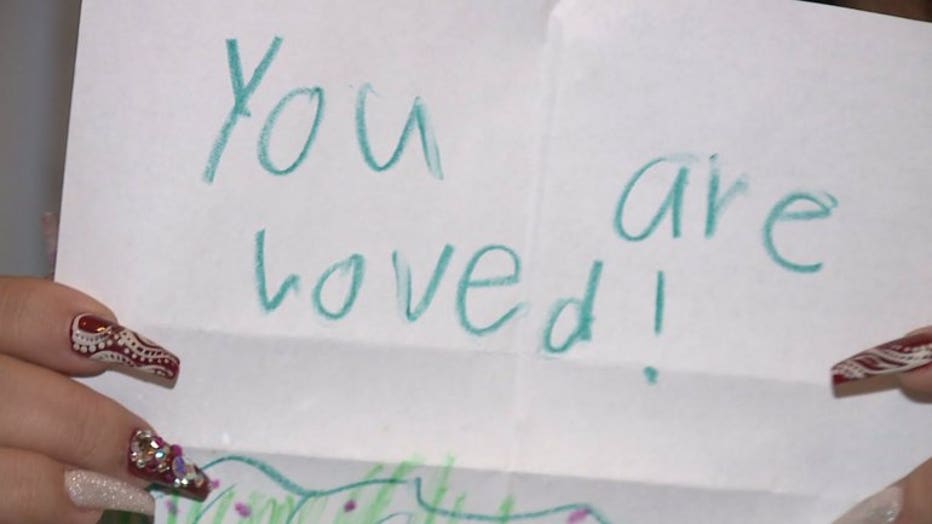 You are
Loved!